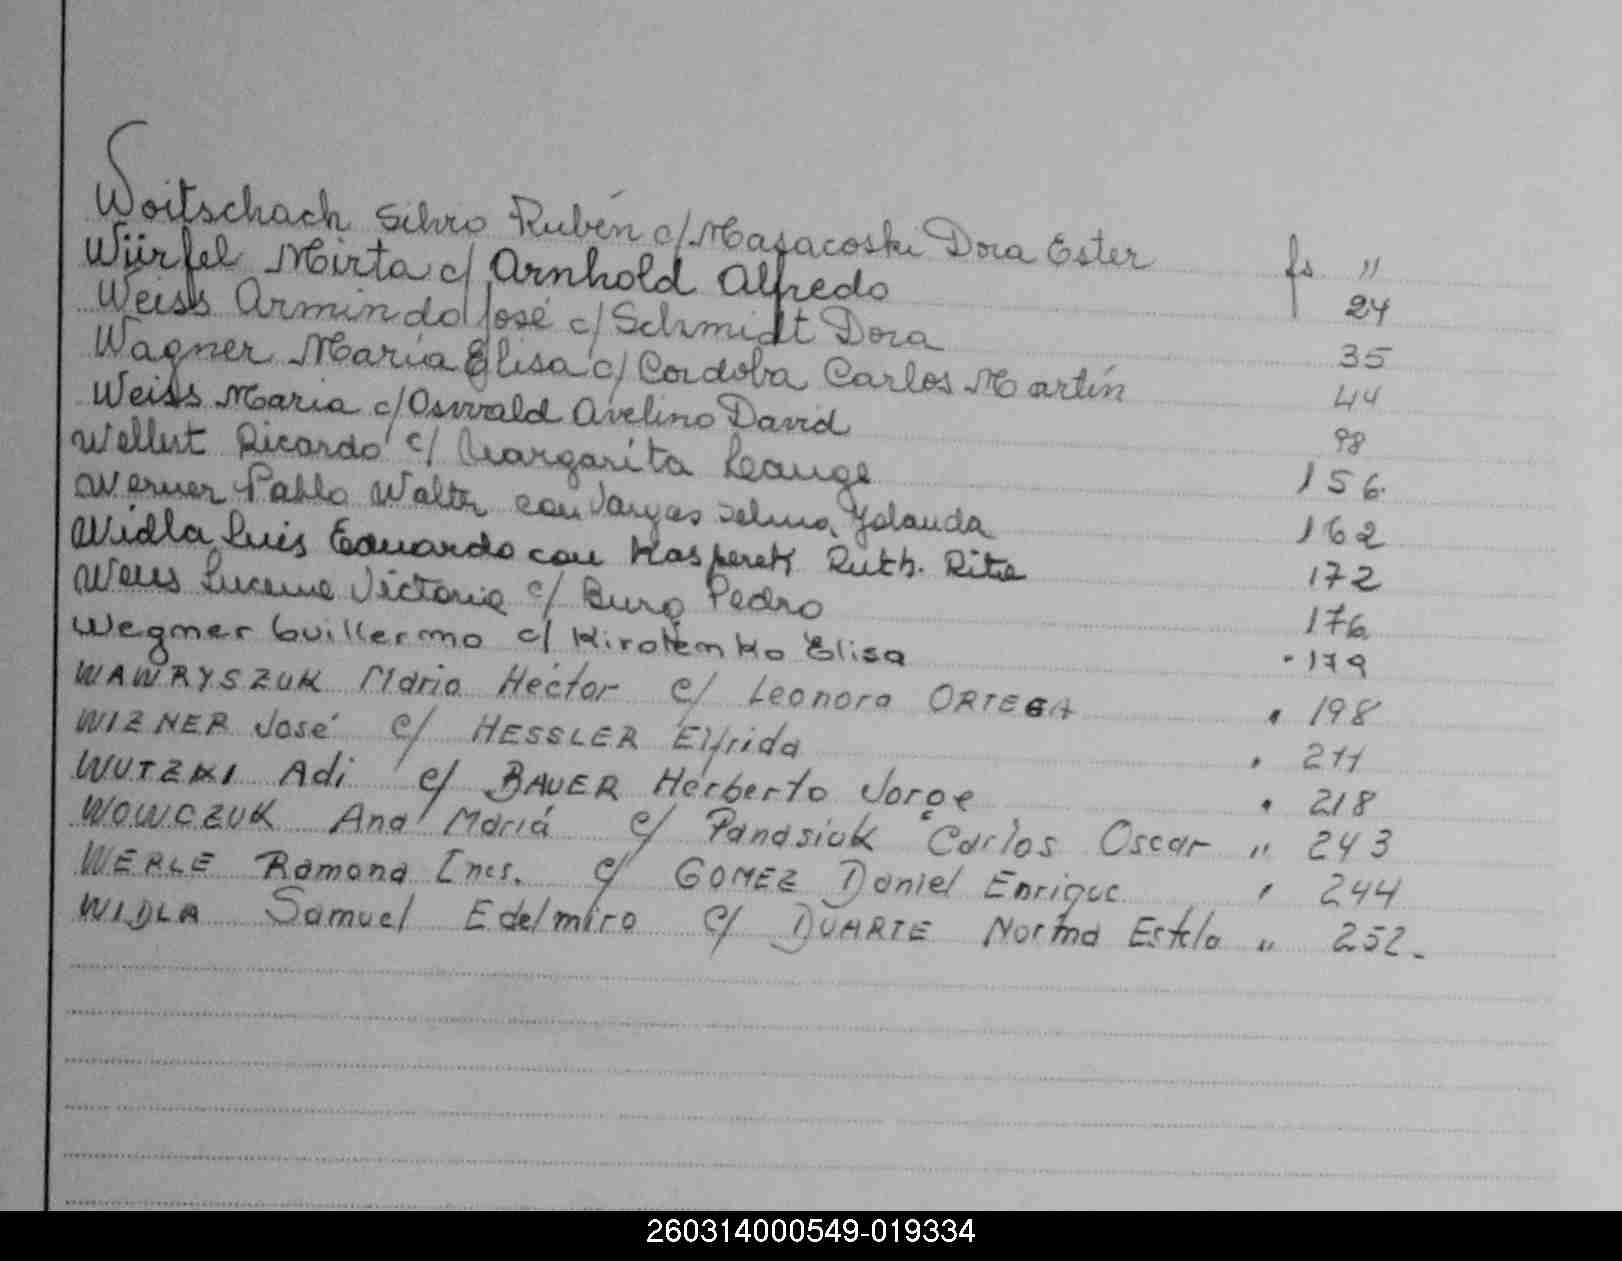 Woitschach Silvio Rubén c/ Masacoski Dora Ester fs "
Würfel Mirta c/ Arnhold Alfredo 24
Weiss Armindo José c/ Schmidt Dora 35
Wagner María Elisa c/ Cordoba Carlos Martín 44
Weiss Maria c/ Oswald Avelino David 98
Ricardo c/ Margarita 156.
Werner Pablo Walter con Vargas Selma Yolanda 162
Widla Luis Eduardo con Kasperek Ruth. Rita 172
Victoria c/ Burg Pedro 176
Wegmer Guillermo c/ Kirotemko Elisa 179
WAWRYSZUK Mario Hector c/ Leonora ORTEGA " 198
WIZNER José c/ HESSLER Elfrida " 211
WUTZKI Adi c/ BAUER Herberto Jorge " 218
WOWCZUK Ana Mariá c/ Panasiuk Carlos Oscar " 243
WERLE Ramona Ines. c/ GOMEZ Daniel Enrique " 244
WIDLA Samuel Edelmiro c/ DUARTE Norma Estela " 252.
260314000549-019334